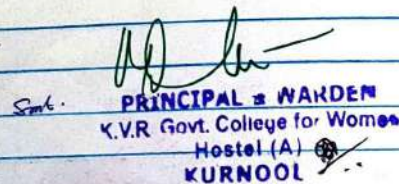 Smt.
PRINCIPAL & WARDEN
K.V.R Govt. College for Women
Hostel (A)
KURNOOL